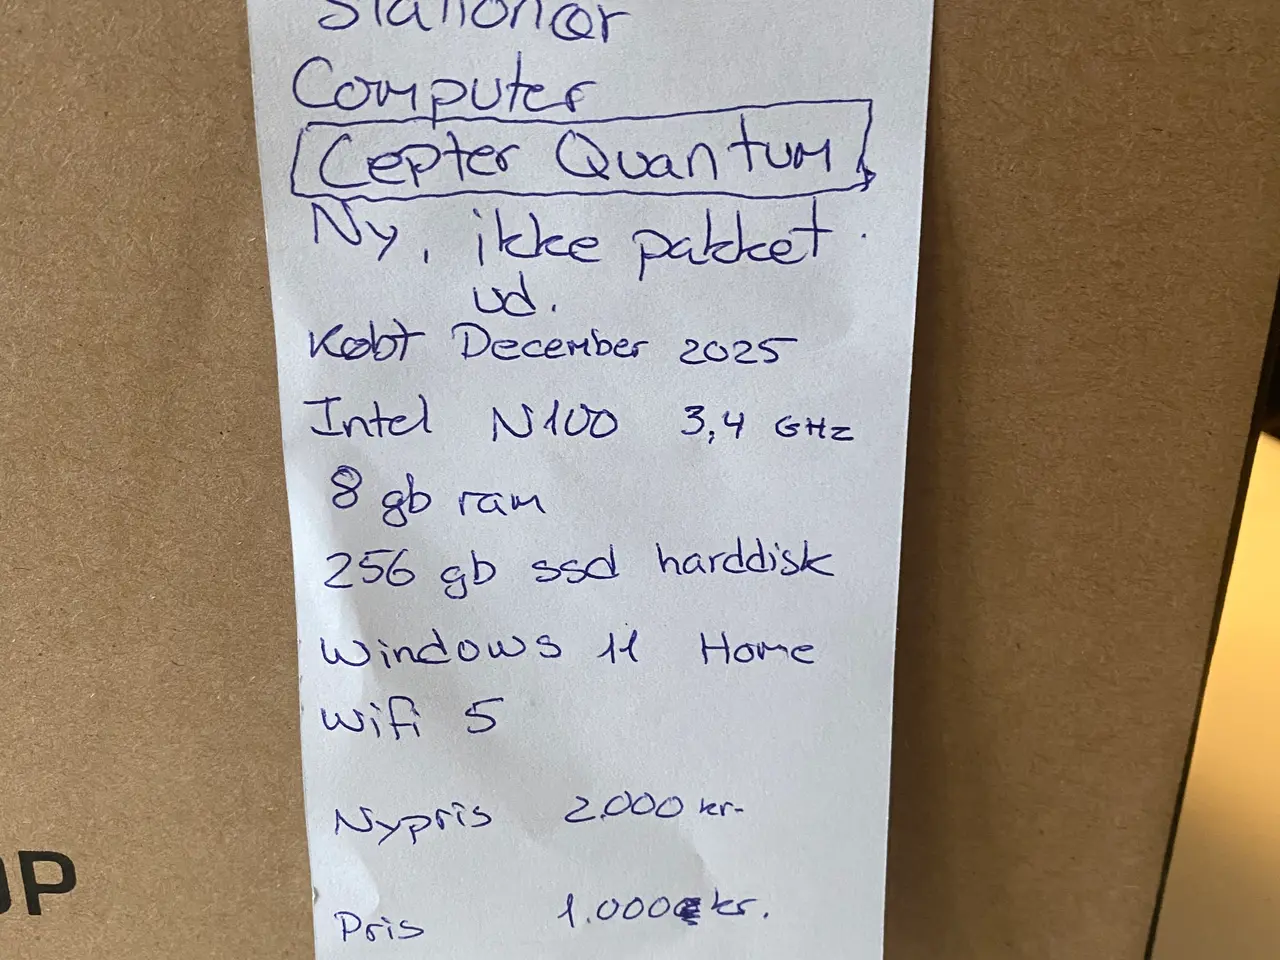 Stationær
Computer
Cepter Quantum
Ny, ikke pakket
ud.
Købt December 2025
Intel N100 3,4 GHz
8 gb ram
256 gb ssd harddisk
Windows 11 Home
Wifi 5
Nypris 2.000 kr-
Pris 1.000 kr.